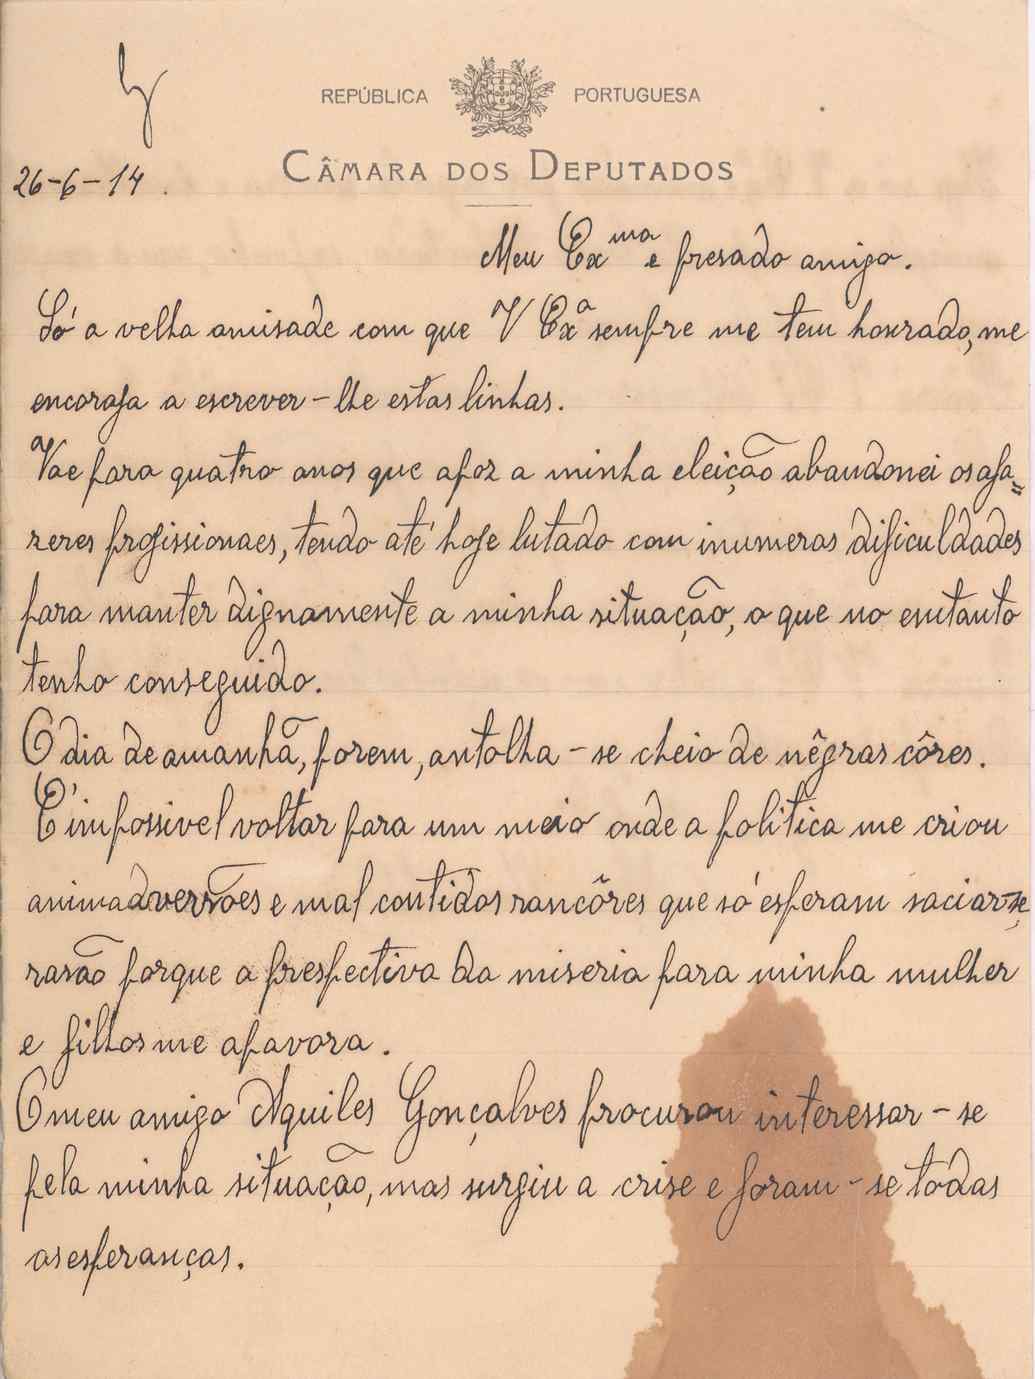 REPÚBLICA PORTUGUESA
CÂMARA DOS DEPUTADOS
26-6-14.
Meu Exmo e presado amigo.
Só a velha amisade com que V Exa sempre me tem honrado, me
encoraja a escrever-lhe estas linhas.
Vae para quatro anos que apoz a minha eleição abandonei os afa=
zeres profissionaes, tendo até hoje lutado com inumeras dificuldades
para manter dignamente a minha situação, o que no emtanto
tenho conseguido.
O dia de amanhã, porem, antolha-se cheio de nêgras côres.
É impossivel voltar para um meio onde a politica me criou
animadversões e mal contidos rancôres que só esperam saciar-se,
rasão porque a prespectiva da miseria para minha mulher
e filhos me apavora.
O meu amigo Aquiles Gonçalves procurou interessar-se
pela minha situação, mas surgiu a crise e foram-se todas
as esperanças.